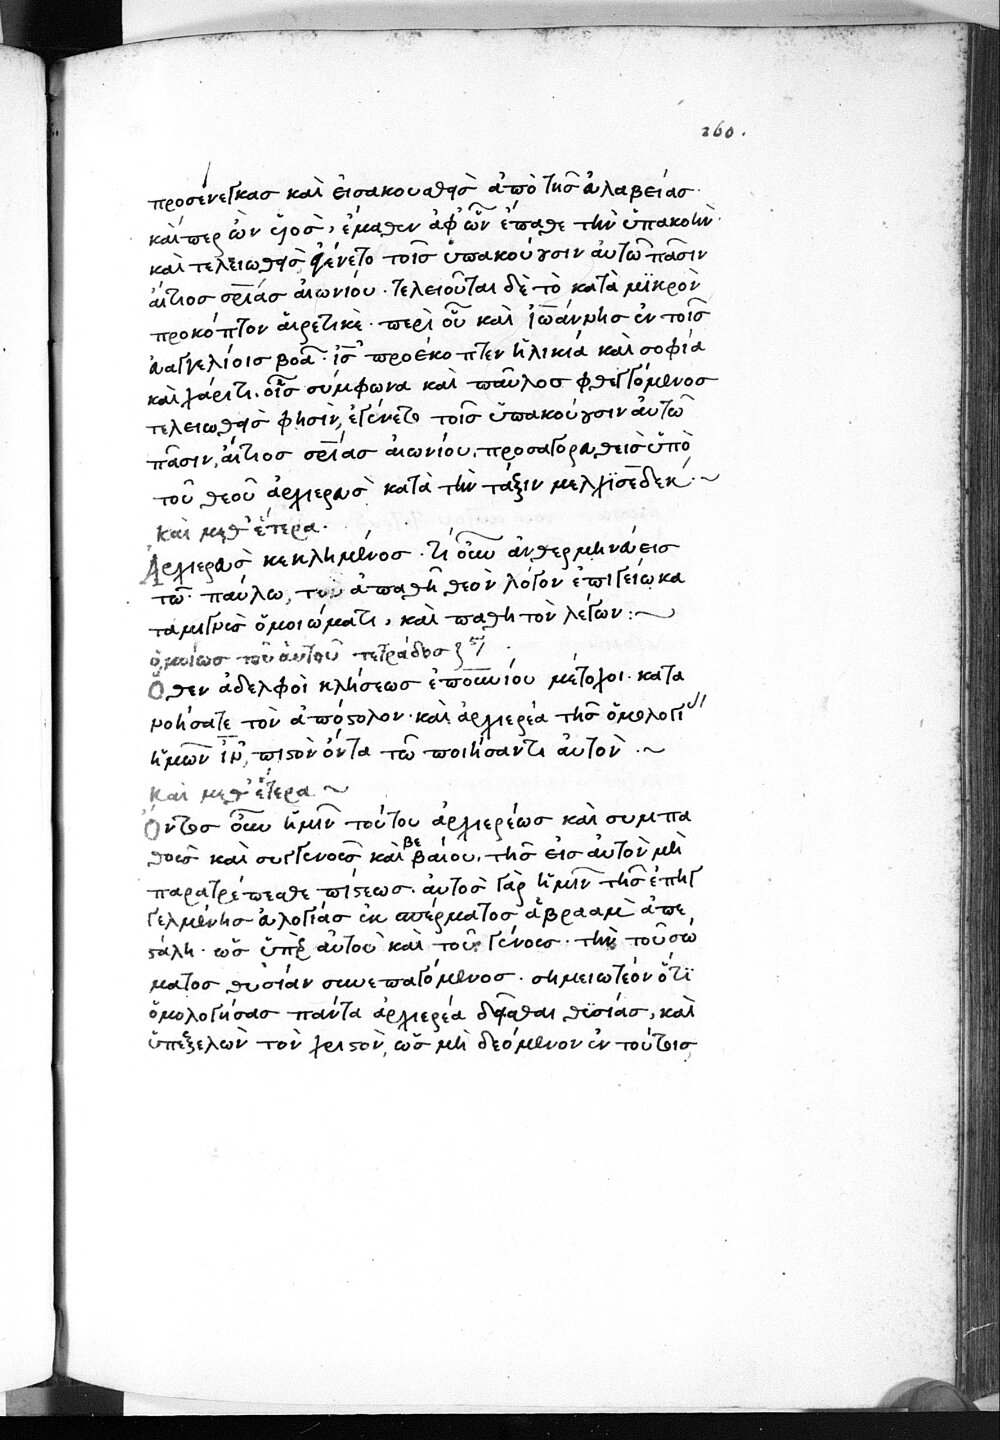 260.
προσενέγκας καὶ εἰσακουσθεὶς ἀπὸ τῆς εὐλαβείας·
καίπερ ὢν υἱὸς, ἔμαθεν ἀφ' ὧν ἔπαθε τὴν ὑπακοὴν·
καὶ τελειωθεὶς ἐγένετο τοῖς ὑπακούουσιν αὐτῶ πᾶσιν
αἴτιος σρίας αἰωνίου· τελειοῦται δὲ τὸ κατὰ μικρὸν
προκόπτον αἱρετικέ· περὶ οὗ καὶ ἰωάννης ἐν τοῖς
εὐαγγελίοις βοᾶ· ἰς προέκοπτεν ἡλικία καὶ σοφία
καὶ χάριτι. οἷς σύμφωνα καὶ παῦλος φθεγγόμενος
τελειωθεὶς φησὶν, ἐγένετο τοῖς ὑπακούουσιν αὐτῶ
πᾶσιν, αἴτιος σρίας αἰωνίου, προσαγορευθεὶς ὑπὸ
τοῦ θεοῦ ἀρχιερεὺς κατὰ τὴν τάξιν μελχισεδεκ·~
καὶ μεθ' ἕτερα·
Ἀρχιερεὺς κεκλημένος· τί οὖν ἀνθερμηνεύεις
τῶ παύλω, τὸν ἀπαθῆ θεὸν λόγον ἐπιγείω κα
ταμιγνὺς ὁμοιώματι, καὶ παθητὸν λέγων:~
ὁμοίως τοῦ αὐτοῦ τετράδος
Ὅθεν ἀδελφοὶ κλήσεως ἐπουνίου μέτοχοι· κατα
νοήσατε τὸν ἀπόστολον· καὶ ἀρχιερέα τῆς ὁμολογί
ἡμῶν ἰν, πιστὸν ὄντα τῶ ποιήσαντι αὐτὸν·~
καὶ μεθ' ἕτερα~
Ὄντος οὖν ἡμῖν τούτου ἀρχιερέως καὶ συμπα
θοῦς καὶ συγγενοῦς καὶ βεβαίου, τῆς εἰς αὐτὸν μὴ
παρατρέπεσθε πίστεως· αὐτὸς γὰρ ἡμῖν τῆς ἐπηγ
γελμένης εὐλογίας ἐκ σπέρματος ἀβρααμ ἀπε
στάλη· ὡς ὑπὲρ αὐτοῦ καὶ τοῦ γένους· τὴν τοῦ σώ
ματος θυσίαν συνεπαγόμενος· σημειωτέον ὅτι
ὁμολογήσας πάντα ἀρχιερέα δεῖσθαι θυσίας, καὶ
ὑπεξελὼν τὸν χριστὸν, ὡς μὴ δεόμενον ἐν τούτοις